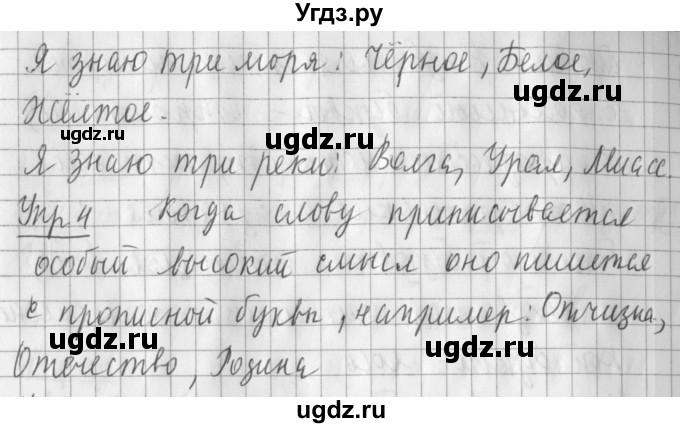 Угдз.ру
Я знаю три моря: Чёрное, Белое,
Жёлтое.
ugdz.ru ugdz.ru
Я знаю три реки: Волга, Урал, Миасс.
Упр 4 Когда слову приписывается
особый высокий смысл оно пишется
с прописной буквы, например: Отчизна,
ugdz.ru ugdz.ru
Отечество, Родина
ugdz.ru